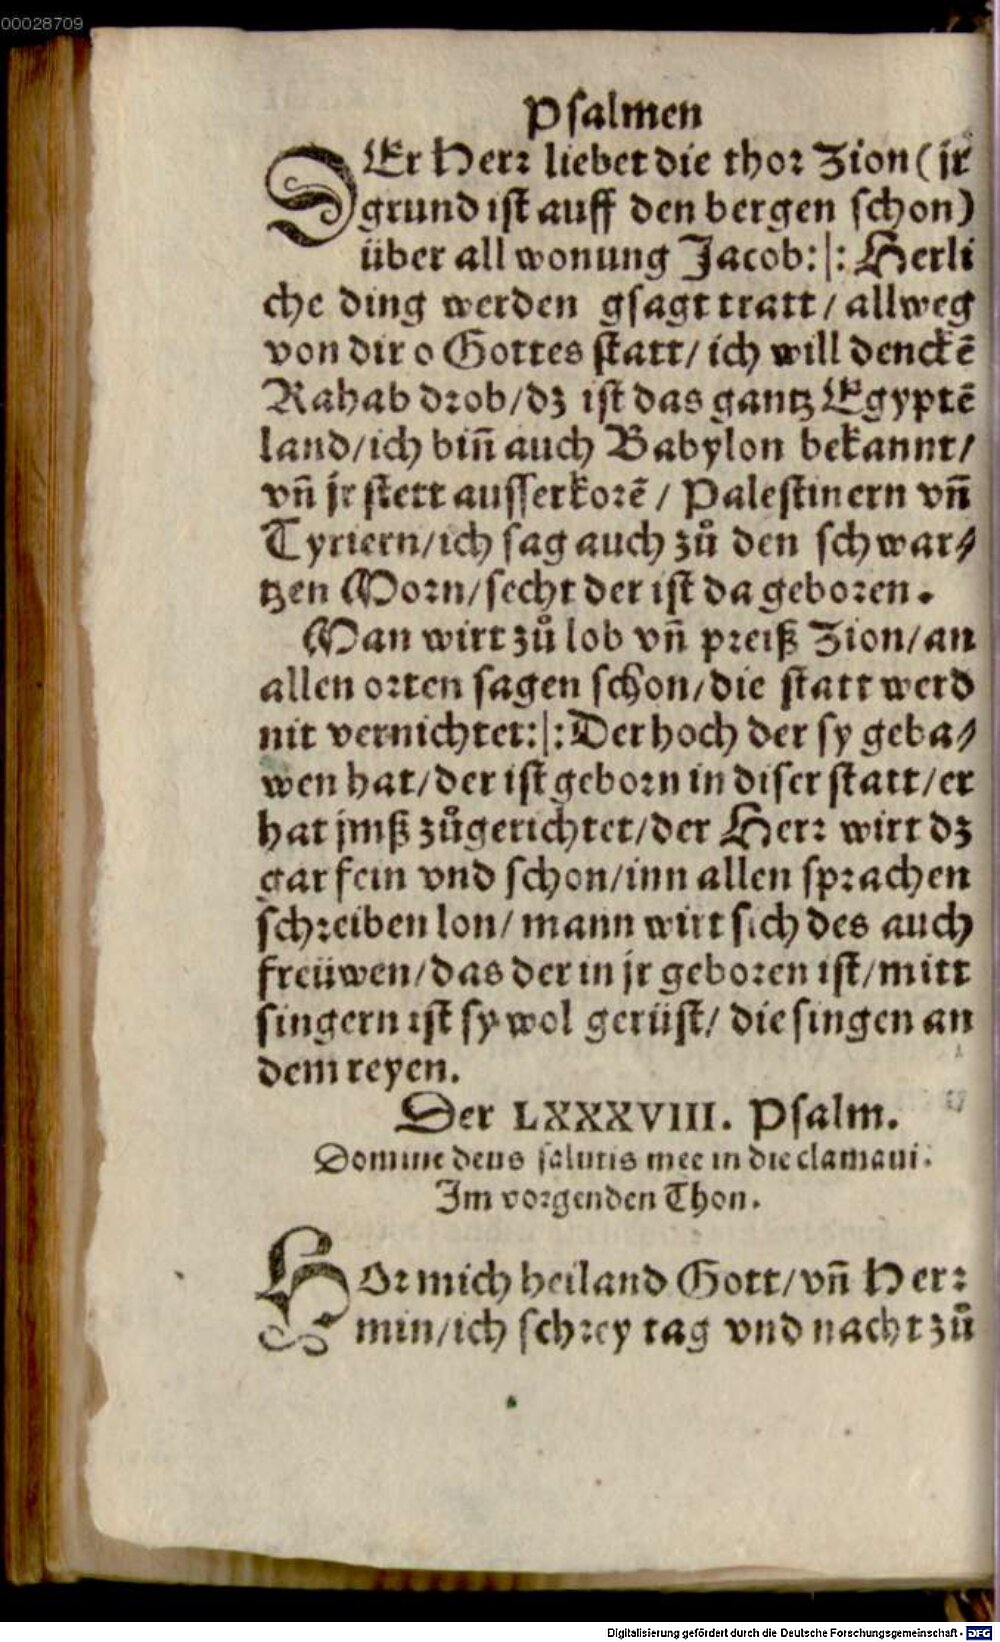 00028709
Psalmen
DEr Herr liebet die thor Zion (jr
grund ist auff den bergen schon)
über all wonung Jacob:|: Herli
che ding werden gsagt tratt / allweg
von dir o Gottes statt / ich will denckē
Rahab drob / dz ist das gantz Egyptē
land / ich biñ auch Babylon bekannt /
vñ jr stett ausserkorē / Palestinern vñ
Tyriern / ich sag auch zů den schwar⸗
tzen Morn / secht der ist da geboren.
Man wirt zů lob vñ preiß Zion / an
allen orten sagen schon / die statt werd
nit vernichtet:|: Der hoch der sy geba⸗
wen hat / der ist geborn in diser statt / er
hat jmß zůgerichtet / der Herr wirt dz
gar fein vnd schon / inn allen sprachen
schreiben lon / mann wirt sich des auch
freüwen / das der in jr geboren ist / mitt
singern ist sy wol gerüst / die singen an
dem reyen.
Der LXXXVIII. Psalm.
Domine deus salutis mee in die clamaui.
Im vorgenden Thon.
HOr mich heiland Gott / vñ Herr
min / ich schrey tag vnd nacht zů
Digitalisierung gefördert durch die Deutsche Forschungsgemeinschaft - DFG